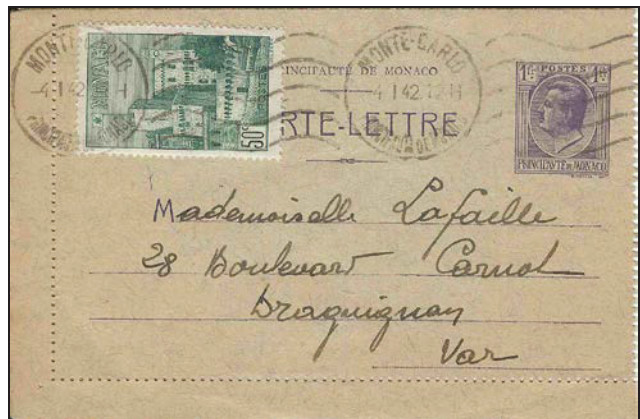 MONTE-CARLO
4 I 42
MONACO
POSTES
50c
PRINCIPAUTÉ DE MONACO
RTE-LETTRE
MONTE-CARLO
4 I 42 12 H
POSTES
PRINCIPAUTÉ DE MONACO
Mademoiselle Lafaille
28 Boulevard Carnot
Draguignan
Var